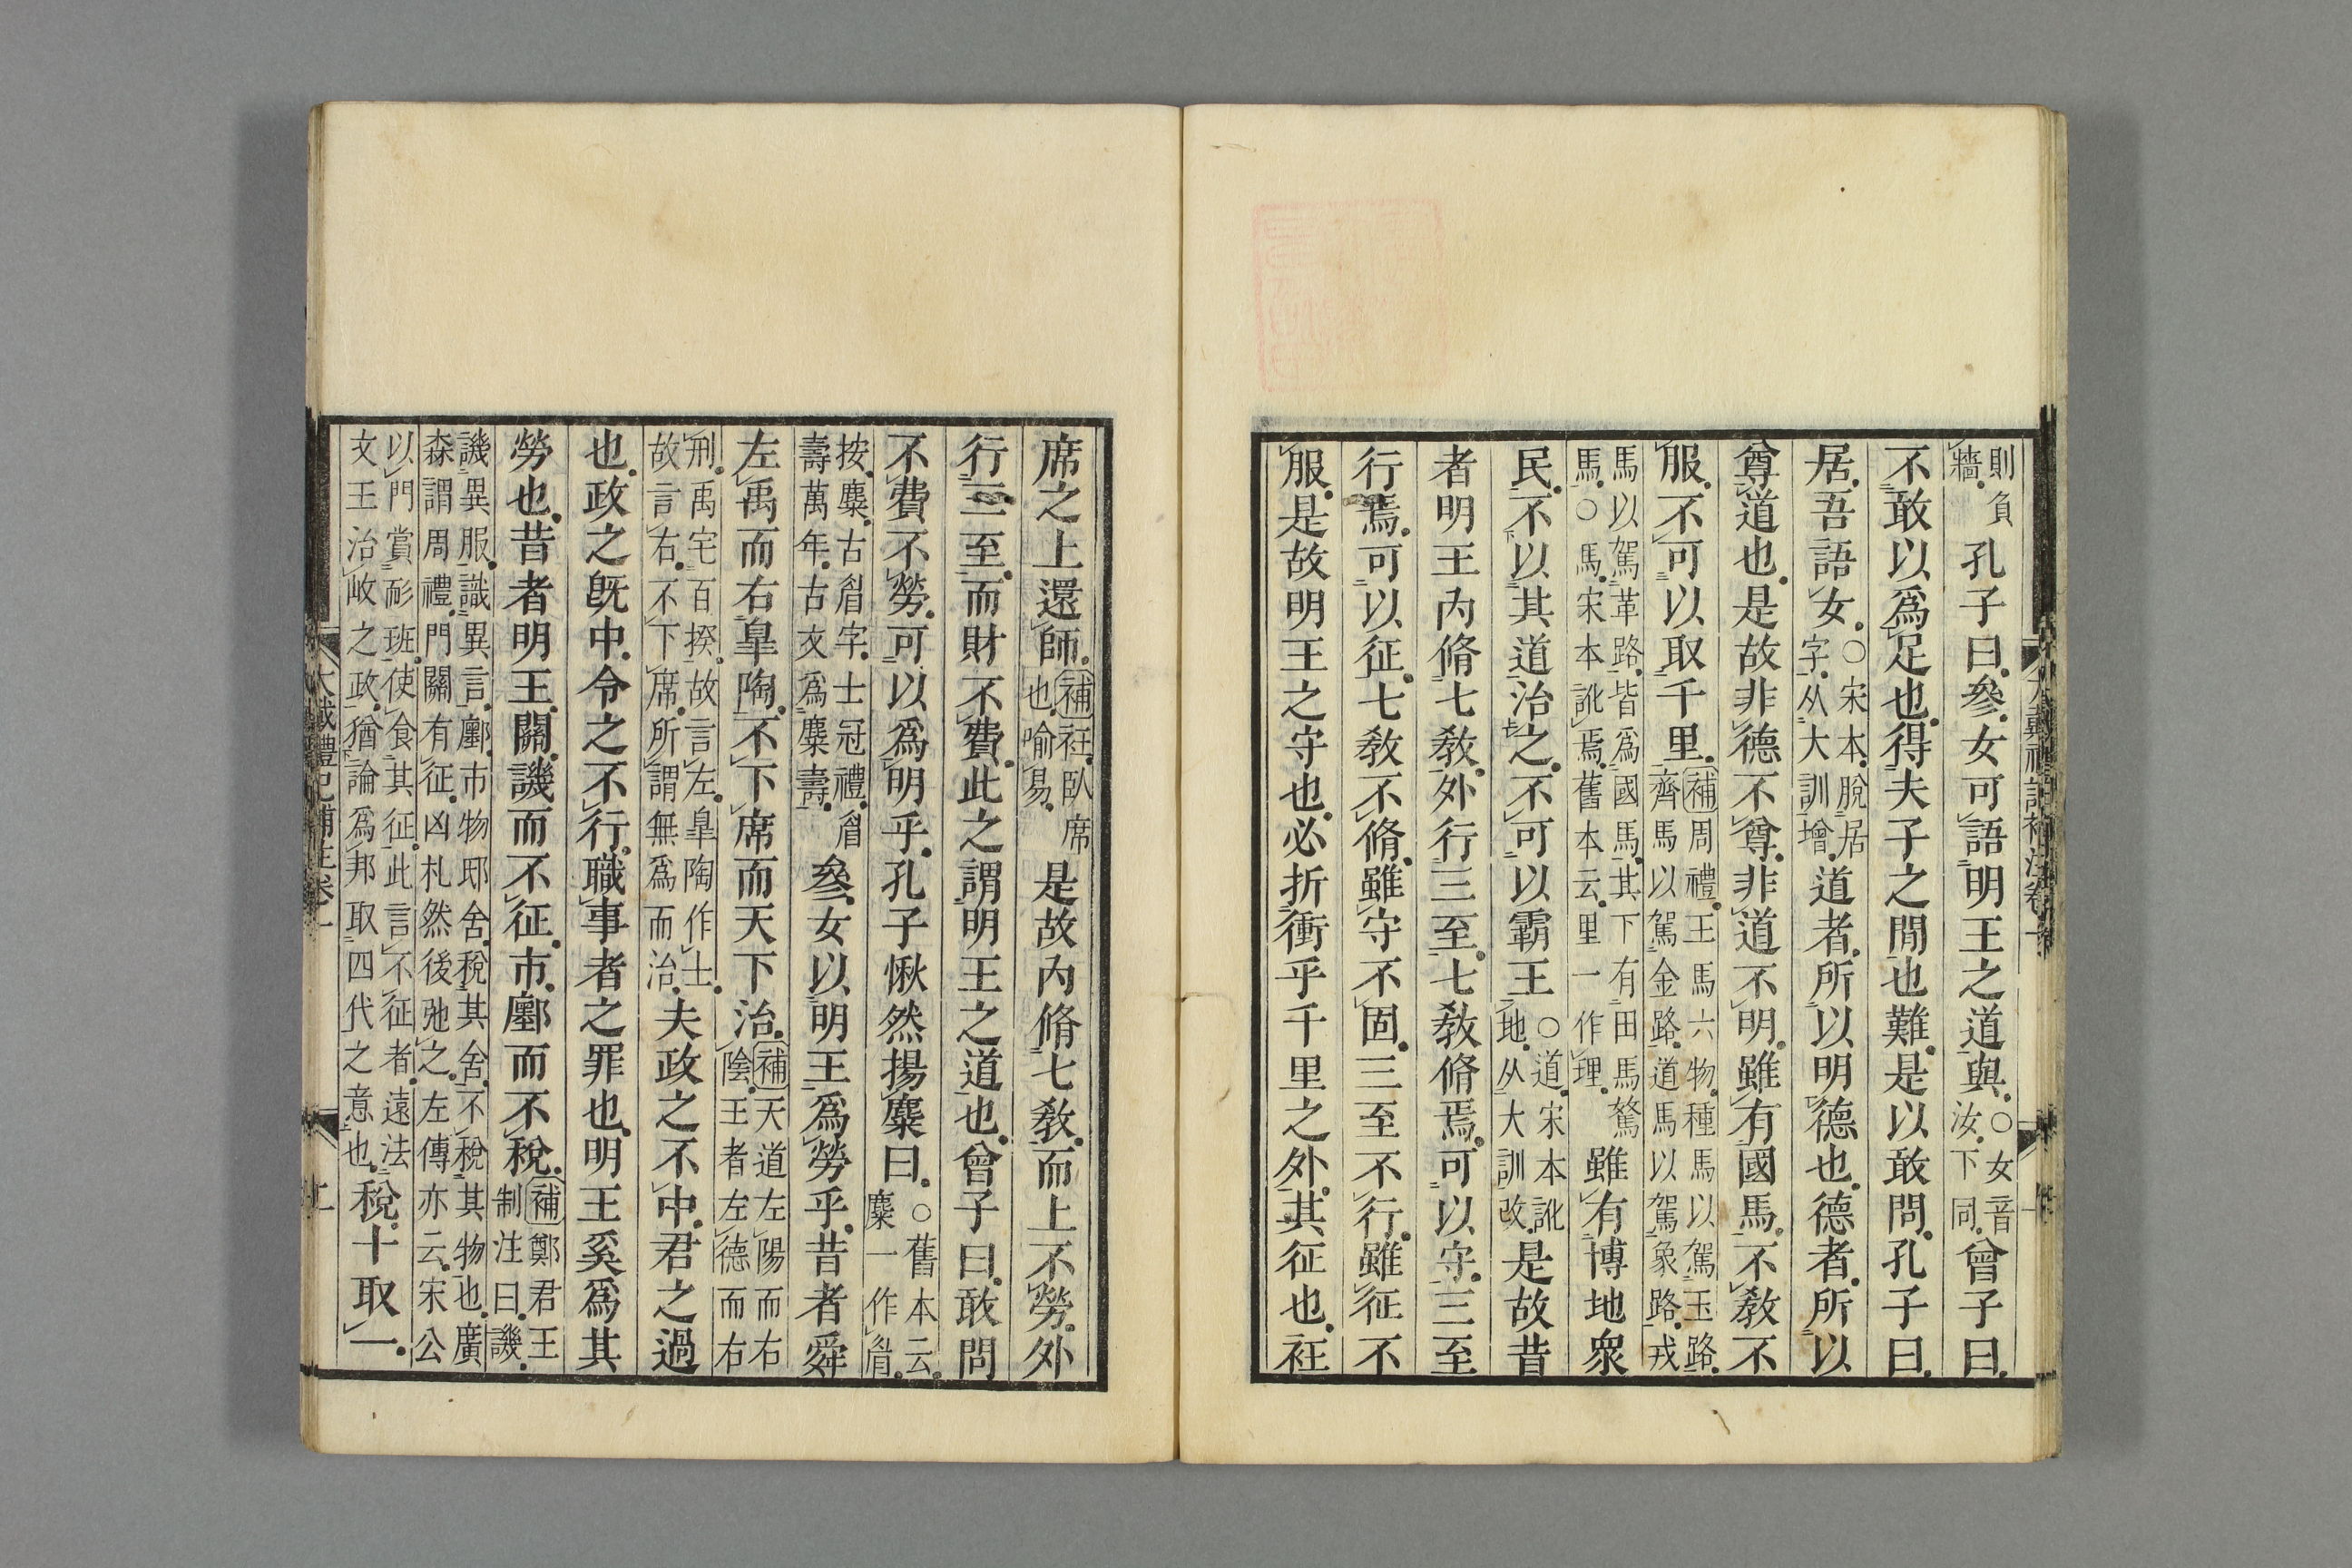 則負牆。孔子曰。參。女可語明王之道與。○女音汝。下同。曾子曰。
不敢以爲足也。得夫子之閒也難。是以敢問。孔子曰。
居。吾語女。○宋本。脫居字。从大訓增。道者。所以明德也。德者。所以
尊道也。是故非德不尊。非道不明。雖有國馬。不敎不
服。不可以取千里。補周禮。王馬六物。種馬以駕玉路。戎馬以駕革路。齊馬以駕金路。道馬以駕象路。
馬以駕革路。皆爲國馬。其下有田馬駑馬。○馬。宋本訛焉。舊本云。里一作理。雖有博地衆
民。不以其道治之。不可以霸王地。○道。宋本訛地。从大訓改。是故昔
者明王內脩七敎。外行三至。七敎脩焉。可以守。三至
行焉。可以征。七敎不脩。雖守不固。三至不行。雖征不
服。是故明王之守也。必折衝乎千里之外。其征也。衽
席之上還師。補衽。臥席也。喻易。是故內脩七敎。而上不勞。外
行三至。而財不費。此之謂明王之道也。曾子曰。敢問
不費不勞。可以爲明乎。孔子愀然揚麋曰。○舊本云。麋一作眉。
按。麋。古眉字。士冠禮。眉壽萬年。古文爲麋壽。參。女以明王爲勞乎。昔者舜
左禹而右皐陶。不下席而天下治。補天道左陽而右陰。王者左德而右
刑。禹宅百揆。故言左。皐陶作士。故言右。不下席。所謂無爲而治。夫政之不中。君之過
也。政之旣中。令之不行。職事者之罪也。明王奚爲其
勞也。昔者明王。關。譏而不征。市。鄽而不稅。補鄭君王制注曰。譏。
譏異服。識異言。鄽。市物邸舍。稅其舍。不稅其物也。廣森謂周禮。門關有征。凶札然後弛之。左傳亦云。宋公
以門賞耏班。使食其征。此言不征者。遠法文王治岐之政。猶論爲邦取四代之意也。稅十取一。